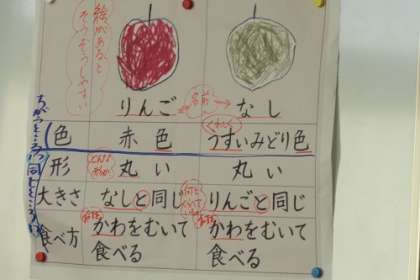 絵があると
そうぞうしやすい
りんご
名前
なし
色
赤色
うすいみどり色
形
丸い
丸い
大きさ
なしと同じ
りんごと同じ
食べ方
かわをむいて
食べる
かわをむいて
食べる